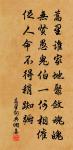 蒿里誰家地聚斂魂魄
無賢愚鬼伯一何相催
促人命不得稍踟蹰